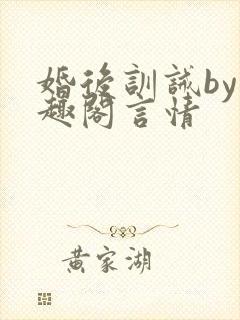 婚後訓誡by
趣閣言情
黄家湖